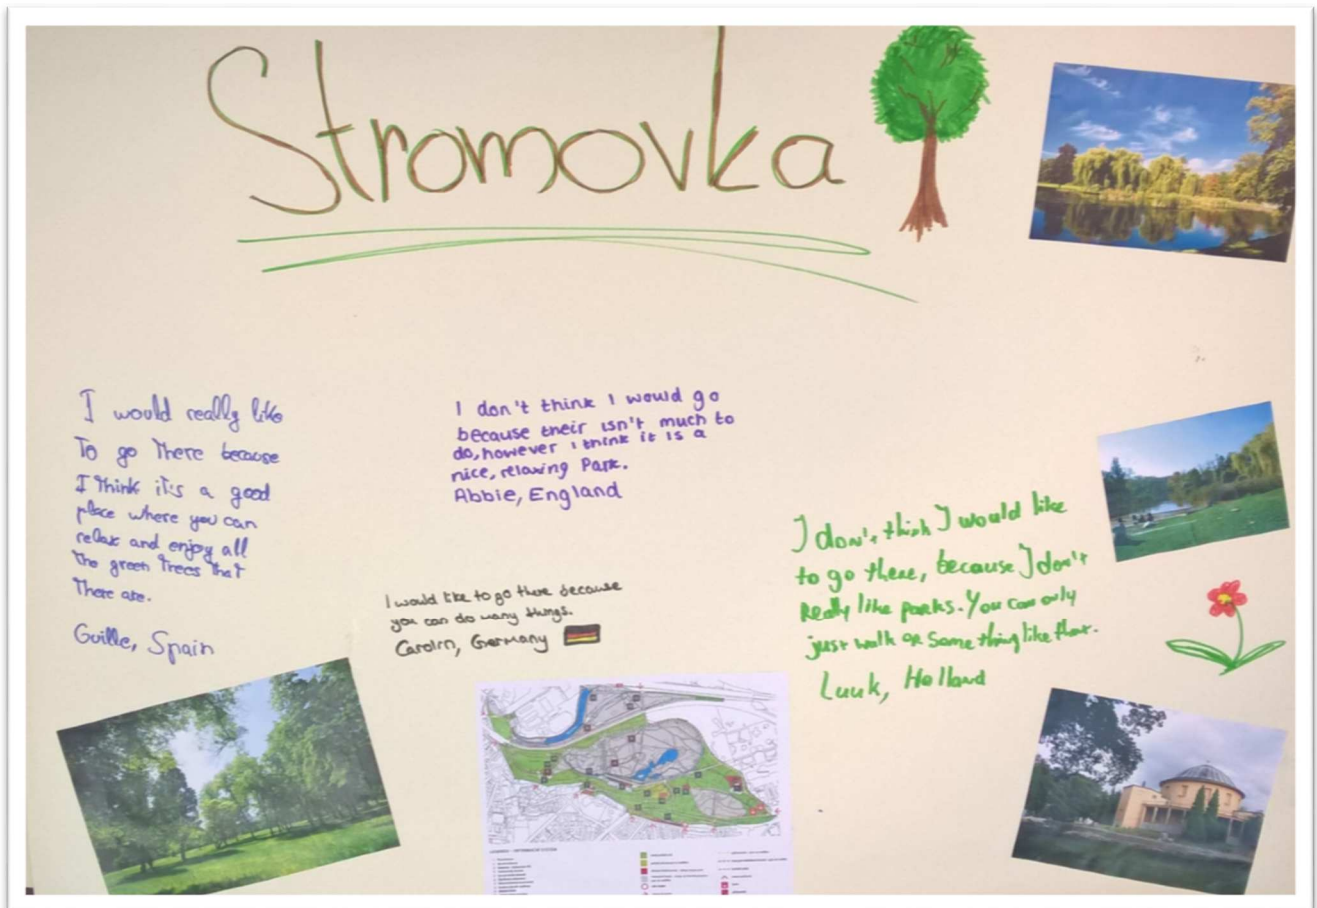 Stromovka
I would really like
To go There because
I Think it's a good
place where you can
relax and enjoy all
The green Trees that
There are.
Guille, Spain
I don't think I would go
because their isn't much to
do, however I think it is a
nice, relaxing Park.
Abbie, England
I would like to go there because
you can do many things.
Carolin, Germany
I don't think I would like
to go there, because I don't
Really like parks. You can only
just walk or something like that.
Luuk, Holland